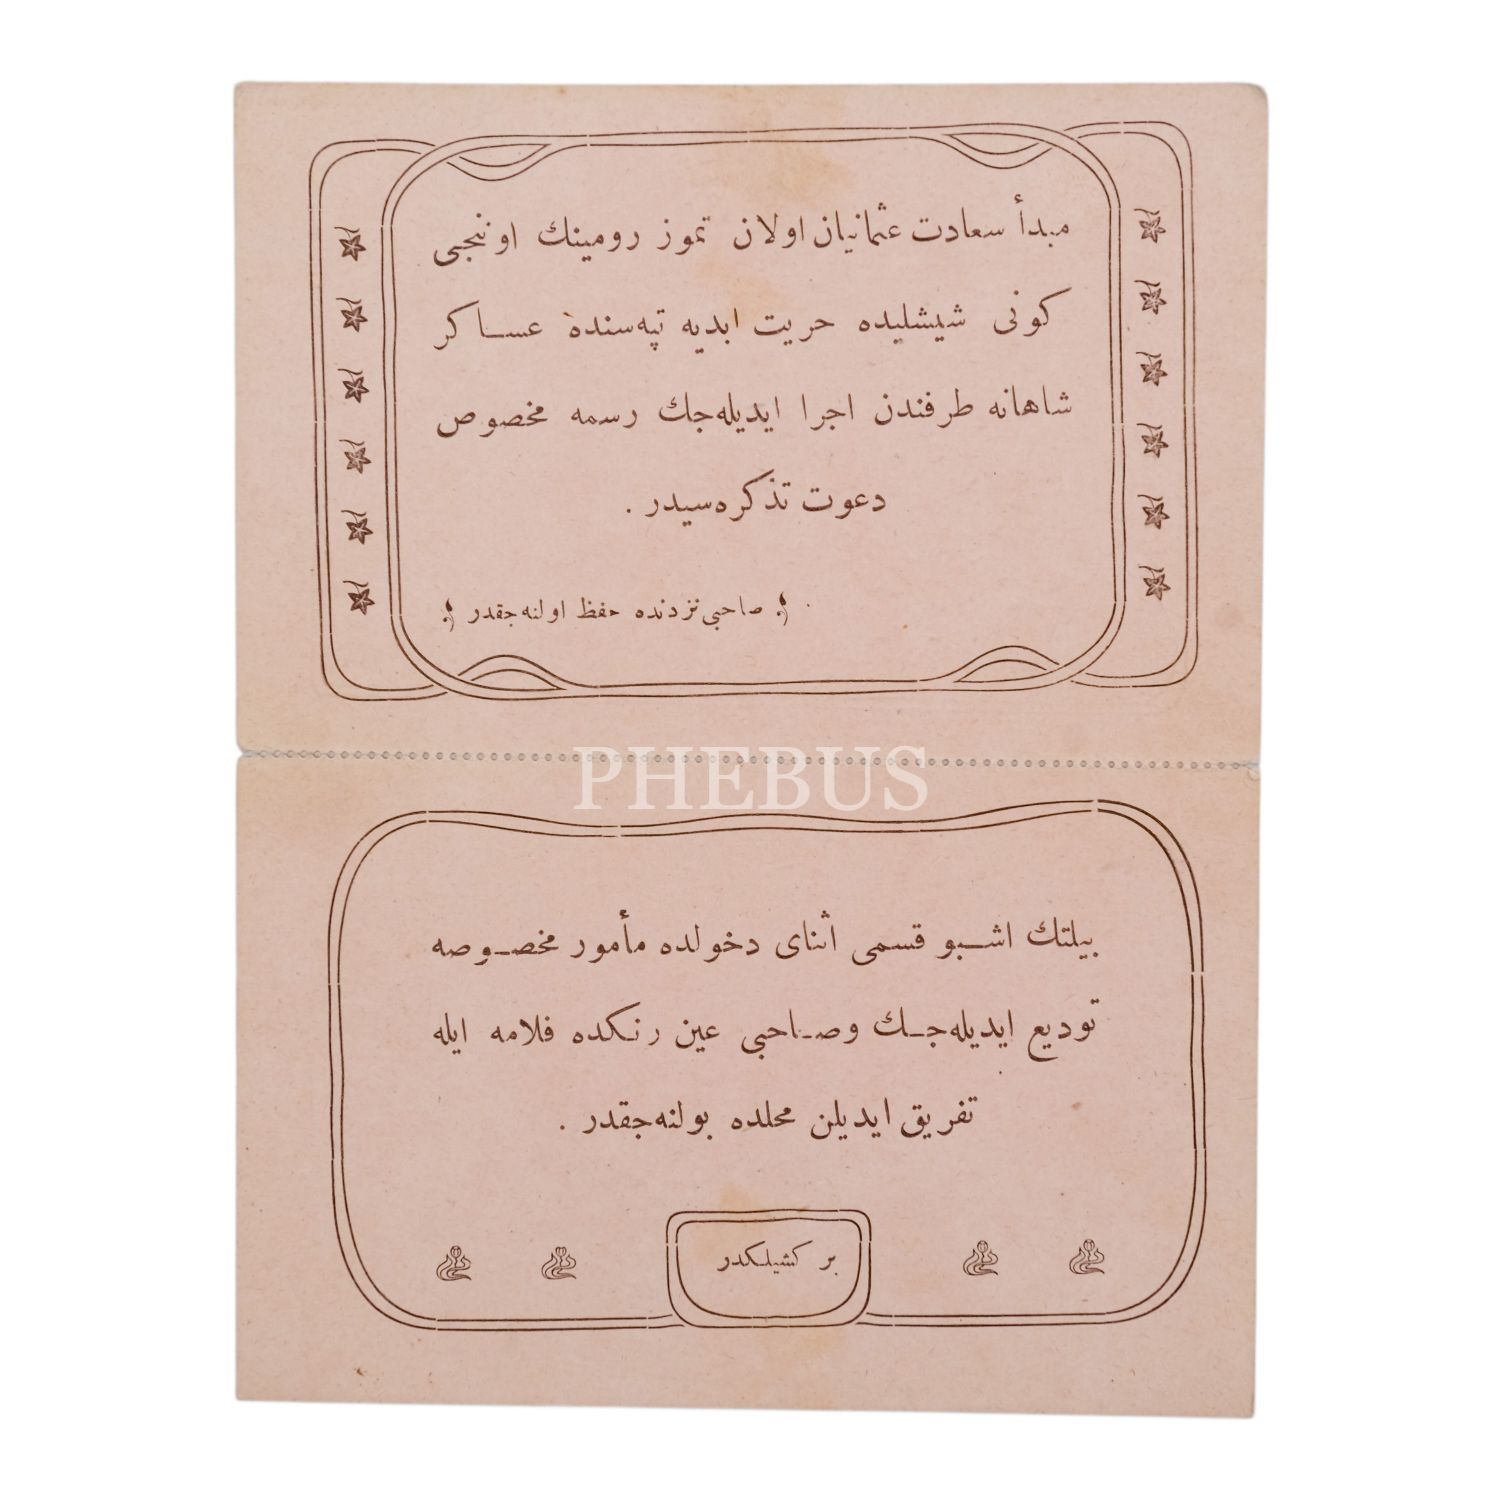 مبدأ سعادت عثمانیان اولان تموز رومینك اوننجی
كونی شیشلیده حریت ابدیه تپه‌سنده عساكر
شاهانه طرفندن اجرا ایدیله‌جك رسمه مخصوص
دعوت تذكره‌سیدر .
صاحبی نزدنده حفظ اولنه‌جقدر
PHEBUS
بیلتك اشبو قسمی اثنای دخولده مأمور مخصوصه
تودیع ایدیله‌جك وصاحبی عین رنكده فلامه ایله
تفریق ایدیلن محلده بولنه‌جقدر .
بر كشیلكدر